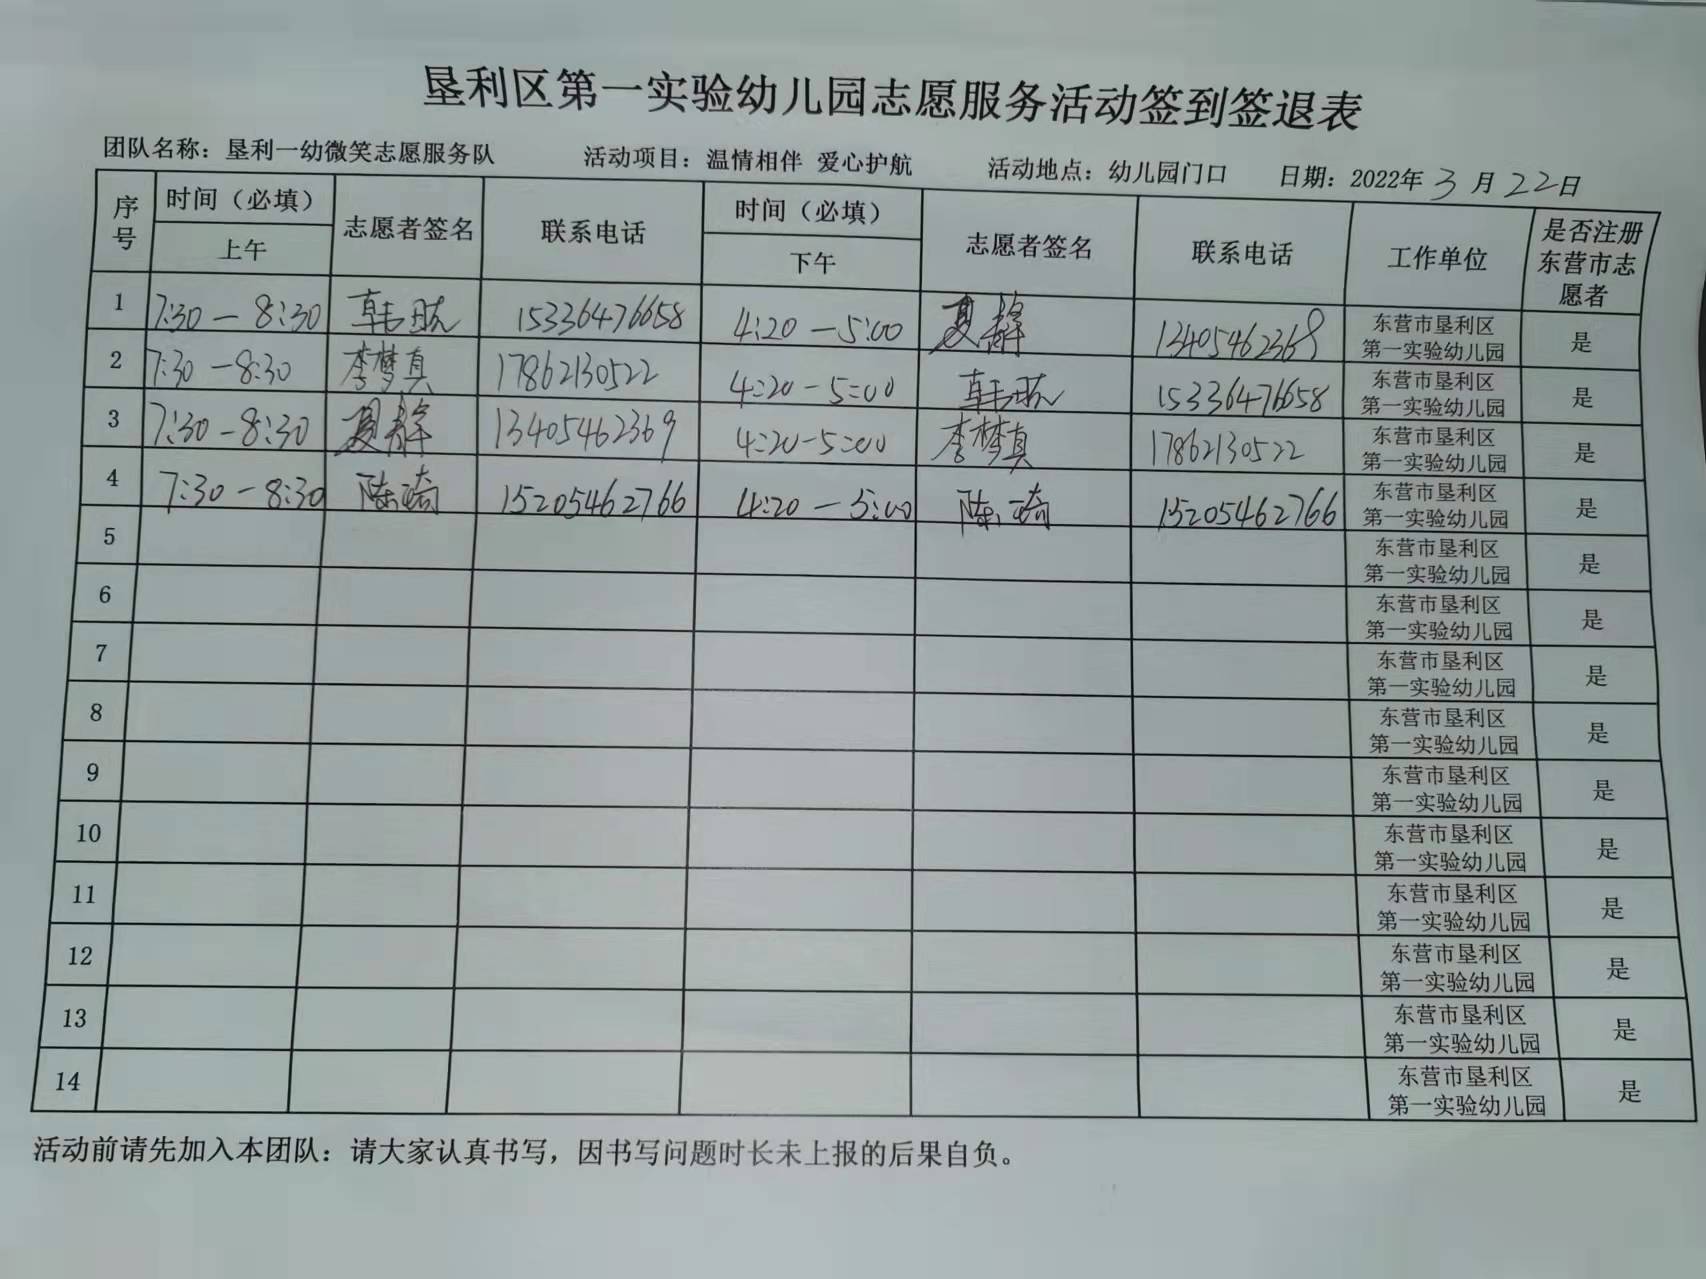 垦利区第一实验幼儿园志愿服务活动签到签退表
团队名称：垦利一幼微笑志愿服务队 活动项目：温情相伴 爱心护航 活动地点：幼儿园门口 日期：2022年3月22日
序号 时间（必填） 上午 志愿者签名 联系电话 时间（必填） 下午 志愿者签名 联系电话 工作单位 是否注册东营市志愿者
1 7:30-8:30 韩 15336476658 4:20-5:00 夏静 13405462369 东营市垦利区第一实验幼儿园 是
2 7:30-8:30 李梦真 17862130522 4:20-5:00 韩 15336476658 东营市垦利区第一实验幼儿园 是
3 7:30-8:30 夏静 13405462369 4:20-5:00 李梦真 17862130522 东营市垦利区第一实验幼儿园 是
4 7:30-8:30 陈琦 15205462766 4:20-5:00 陈琦 15205462766 东营市垦利区第一实验幼儿园 是
5 东营市垦利区第一实验幼儿园 是
6 东营市垦利区第一实验幼儿园 是
7 东营市垦利区第一实验幼儿园 是
8 东营市垦利区第一实验幼儿园 是
9 东营市垦利区第一实验幼儿园 是
10 东营市垦利区第一实验幼儿园 是
11 东营市垦利区第一实验幼儿园 是
12 东营市垦利区第一实验幼儿园 是
13 东营市垦利区第一实验幼儿园 是
14 东营市垦利区第一实验幼儿园 是
活动前请先加入本团队：请大家认真书写，因书写问题时长未上报的后果自负。